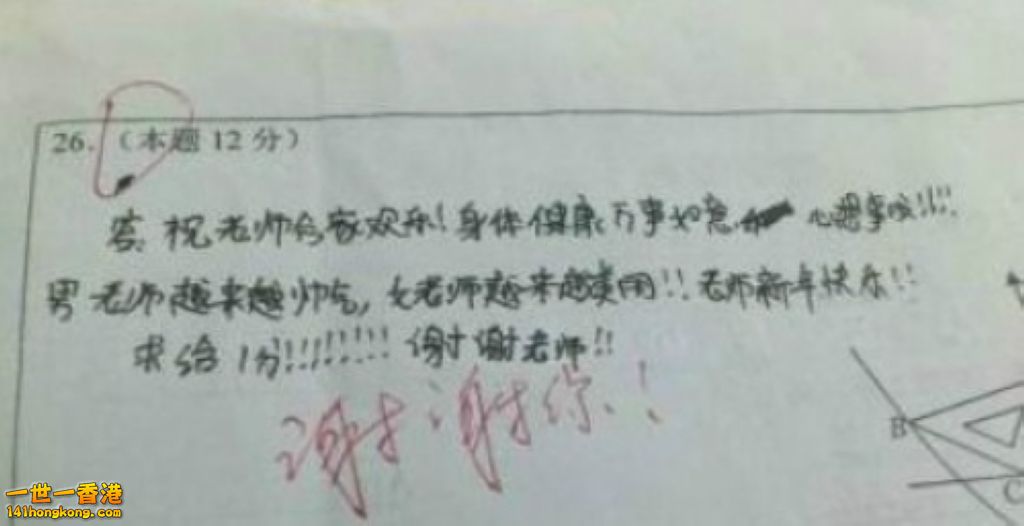 26.（本题 12 分）
答:祝老师合家欢乐!身体健康万事如意 心想事成!!!!
男老师越来越帅气,女老师越来越美丽!!老师新年快乐!!
求给1分!!!!!!!!谢谢老师!!
谢谢你!
B
C
一世一香港
141hongkong.com